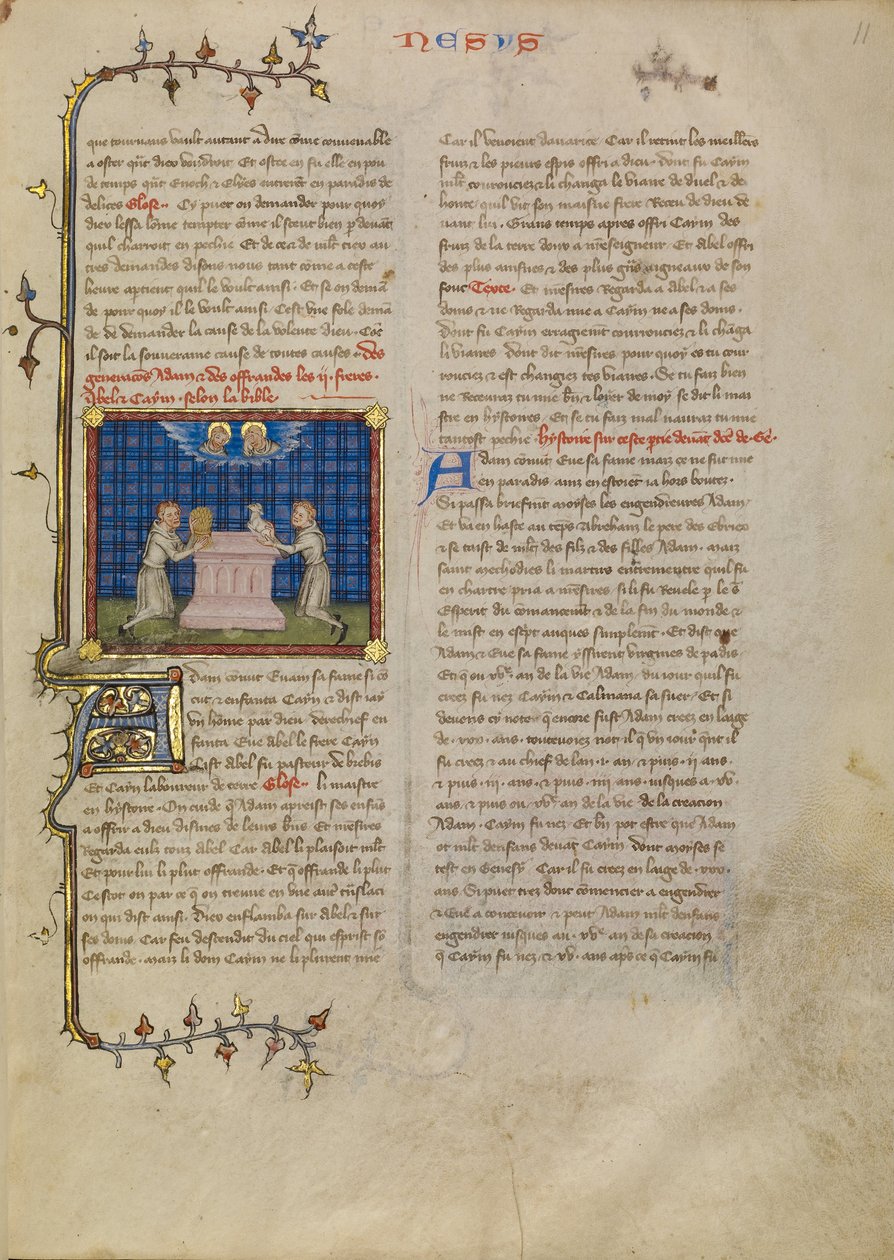 NESUS
11
que tournans vault autant a dire cōme convenable
a oster qñt diex voudroit Et ostee en fu elle en pou
de temps qñt Enoch & Elyes entrerēt en paradis de
delices Glose Cy puet on demander pour quoy
diex lessa lōme tempter cōme il sceut bien p̱ devāt
quil charroit en pechie Et de ce & de ml̃t
tres demandes disons nous tant cōme a ceste
heure apṱient quil le voult ainsi Et se on demā
de pour quoy il le voult ainsi Cest vne fole demā
de de demander la cause de la volente dieu Cōe
il soit la souveraine cause de toutes causes des
generacōs Adam & des offrandes les ij freres
Abel & Caym selon la bible
Adam cōnut Evam sa fame si cō
cut & enfanta Cayn & dist iay
vn hōme par dieu derechief en
fanta Eve abel le frere Cayn
Cist abel fu pasteur de brebis
Et Cayn laboureur de terre Glose li maistre
en hystoire On cuide q̄ Adam aprist ses enfās
a offrir a dieu dismes de leurs bn̄s Et nr̄esires
Regarda eulz touz abel Car abel li plaisoit ml̃t
Et pour lui li plut offrande Et q̄ offrande li plut
Cestot on par ce q̄ on treuve en vne aut̄ trāslaci
on qui dist ainsi Diex enflamba sur abel & sur
ses dons Car feu descendit du ciel qui esprist sō
offrande mais li dom Caym ne li plurent mie
Car il venoient davarice Car il retint les meilleurs
fruiz & les pieurs espis offri a dieu dont fu Caym
ml̃t courrouciez & li changa le viaire de duel & de
honte quil vit son maisne frere Receu de dieu de
vant lui Grans temps apres offri Caym des
fruiz de la terre dons a nr̄eseigneur Et Abel offri
des plus ainsnes & des plus aigneaux de son
fouc Texte Et nr̄esires Regarda a abel & a ses
dons & ne Regarda mie a Caym ne a ses dons
Dont fu Caym erragiemēt courrouciez & li chāga
li viaires Dont dit nr̄esires pour quoy es tu cour
rouciez & est changiez tes viaires Se tu faiz bien
ne Receuras tu mie bn̄ & loyer de moy se dit li mai
stre en hystoires Et se tu faiz mal nauras tu mie
tantost pechie hystoire sur ceste ptie devāt dc̄e de Gē
Adam cōnut Eve sa fame mais ce ne fut mie
en paradis ainz en estoiēt ia hors boutez
Si passa briefmt̄ moyses les engendreures Adam
Et va en haste au tēps Abreham le pere des Ebriex
& se taist de ml̃t des filz & des filles Adam mais
saint mechodies li martirs quil fu
en chartre pria a nr̄esires si li fu Revele p̱ le s̄
Esperit du cōmancemt̄ & de la fin du monde &
le mist en escp̄t auques simplemt̄ Et dist que
Adam & Eve sa fame yssirent virgines de padis
Et q̄ ou xvᵉ an de la vie Adam du iour quil fu
creez fu nez Caym & Calmana sa suer Et si
devons cy noter q̄ encore fust Adam creez en laage
de xxx ans toutevoiez not il q̄ vn iour q̄nt il
fu creez & au chief de lan i an & puis ii ans
& puis iii ans & puis iiii ans iusques a xv
ans & puis ou xvᵉ an de la vie de la creacion
Adam Caym fu nez Et bn̄ pot estre que Adam
ot ml̃t denfans devāt Caym dont moyses se
test en Genesy Car il fu creez en laage de xxx
ans Si puet trez dont cōmencier a engendrer
& Eve a concevoir & peut Adam ml̃t denfans
engendrer iusques au xvᵉ an de sa creacion
q̄ Caym fu nez & xv ans ap̄s ce q̄ Caym fu